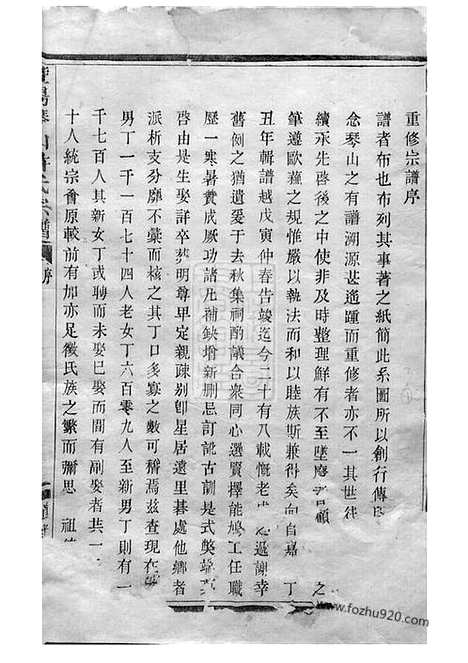 重修宗譜序
譜者布也布列其事著之紙簡此系圖所以創行傳
念琴山之有譜溯源甚遙踵而重修者亦不一其世
續承先啓後之中使非及時整理鮮有不至墜 顧 之
筆遵歐 之規惟嚴以執法而和以睦族斯兼得矣向自嘉 丁
丑年輯譜越戊寅仲春告竣迄今二十有八載慨老 心過謝幸
舊侧之猶遺爰于去秋集祠酌議合衆同心選賢擇能鳩工任職
歷一寒暑贊成厥功諸凡補缺增新刪忌訂訛古訓是式獎
啓由是生娶詳卒葬明尊卑定親疎別卽星居遠里碁處他鄉者
派析支分靡不彙而核之其丁口多寡之數可稽焉兹查現在
男丁一千一百七十四人老女丁六百零九人至新男丁則有一
千七百人其新女丁或聘而未娶巳娶而間有副娶者共一
十人統宗會原較前有加亦足徵氏族之繁而彌思 祖
序
www.fozhu920.com